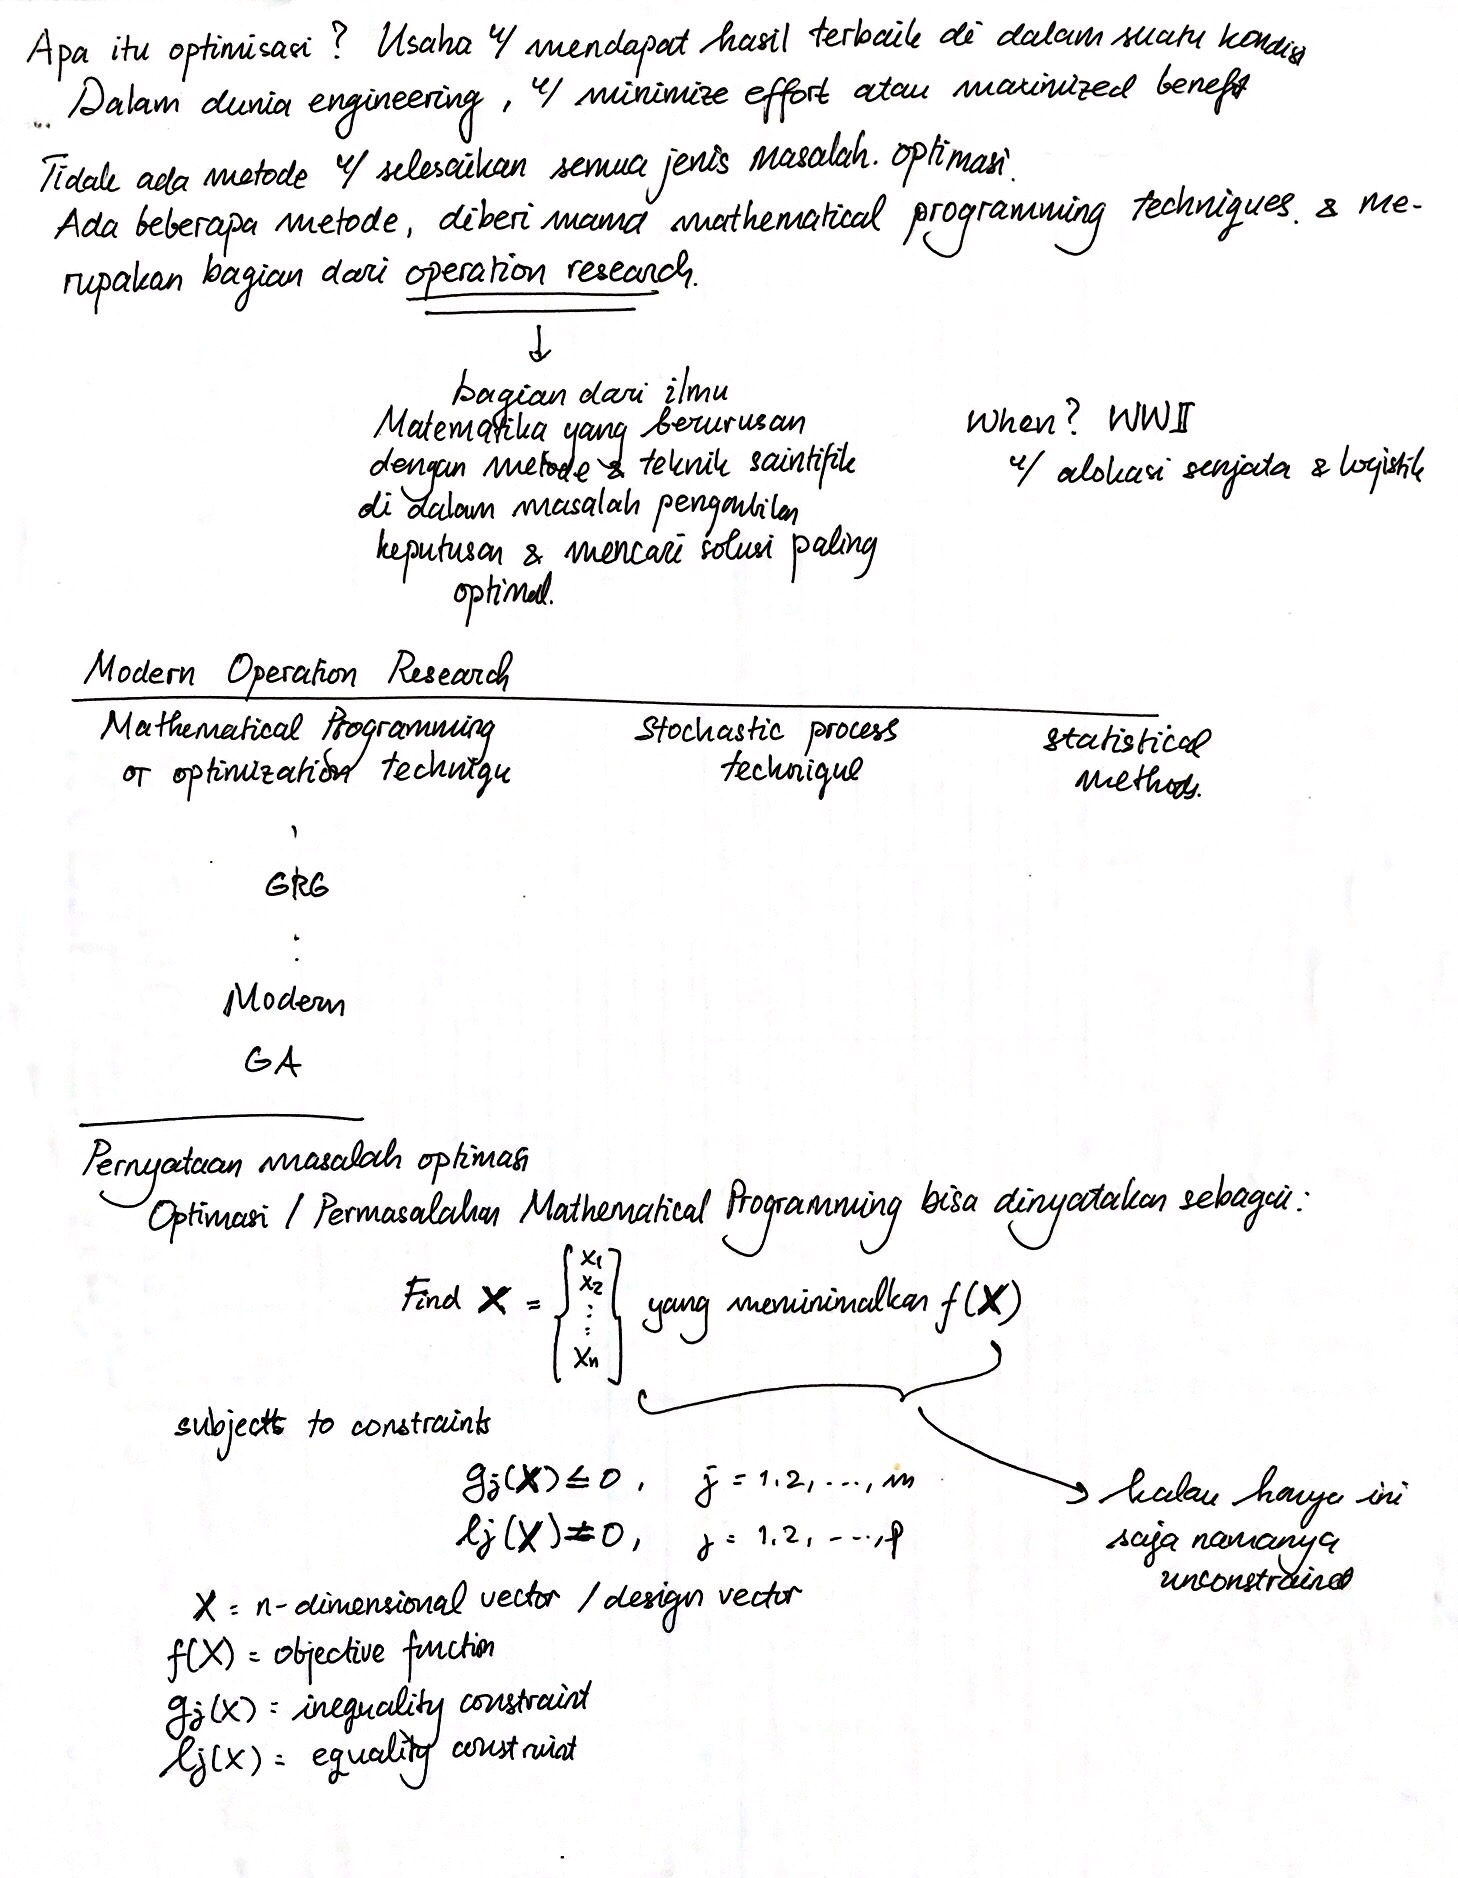 Apa itu optimisasi ? Usaha u/ mendapat hasil terbaik di dalam suatu kondisi
Dalam dunia engineering, u/ minimize effort atau maximized benefit
Tidak ada metode u/ selesaikan semua jenis masalah. optimasi.
Ada beberapa metode, diberi nama mathematical programming techniques. & me-
rupakan bagian dari operation research.
↓
bagian dari ilmu
Matematika yang berurusan
dengan metode & teknik saintifik
di dalam masalah pengambilan
keputusan & mencari solusi paling
optimal.
When? WWII
u/ alokasi senjata & logistik
Modern Operation Research
Mathematical Programming
or optimization techniqu
Stochastic process
technique
statistical
methods.
GRG
:
Modern
GA
Pernyataan masalah optimasi
Optimasi / Permasalahan Mathematical Programming bisa dinyatakan sebagai:
Find X = {x1 x2 ⋮ xn} yang meminimalkan f(X)
subject to constraints
gj(X) ≤ 0, j = 1,2, ..., m
lj(X) = 0, j = 1,2, ..., p
kalau hanya ini
saja namanya
unconstrained
X = n-dimensional vector / design vector
f(X) = objective function
gj(X) = inequality constraint
lj(X) = equality constraint